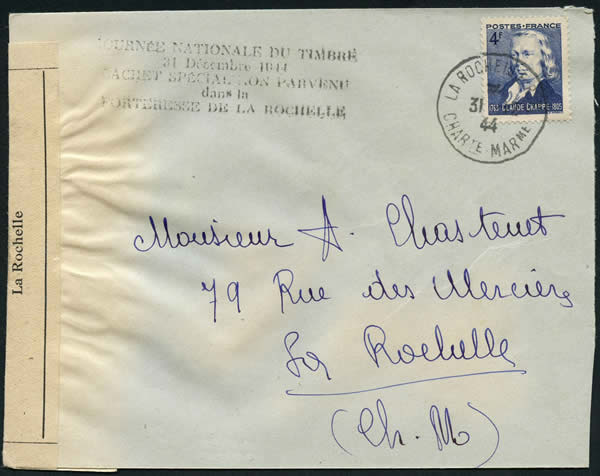 JOURNÉE NATIONALE DU TIMBRE
31 Décembre 1944
CACHET SPÉCIAL NON PARVENU
dans la
FORTERESSE DE LA ROCHELLE
POSTES-FRANCE
4F
1763 CLAUDE CHAPPE 1805
LA ROCHELLE
31
44
CHARTE-MARME
La Rochelle
Monsieur A. Chastenet
79 Rue des Merciers
La Rochelle
(Ch. M)